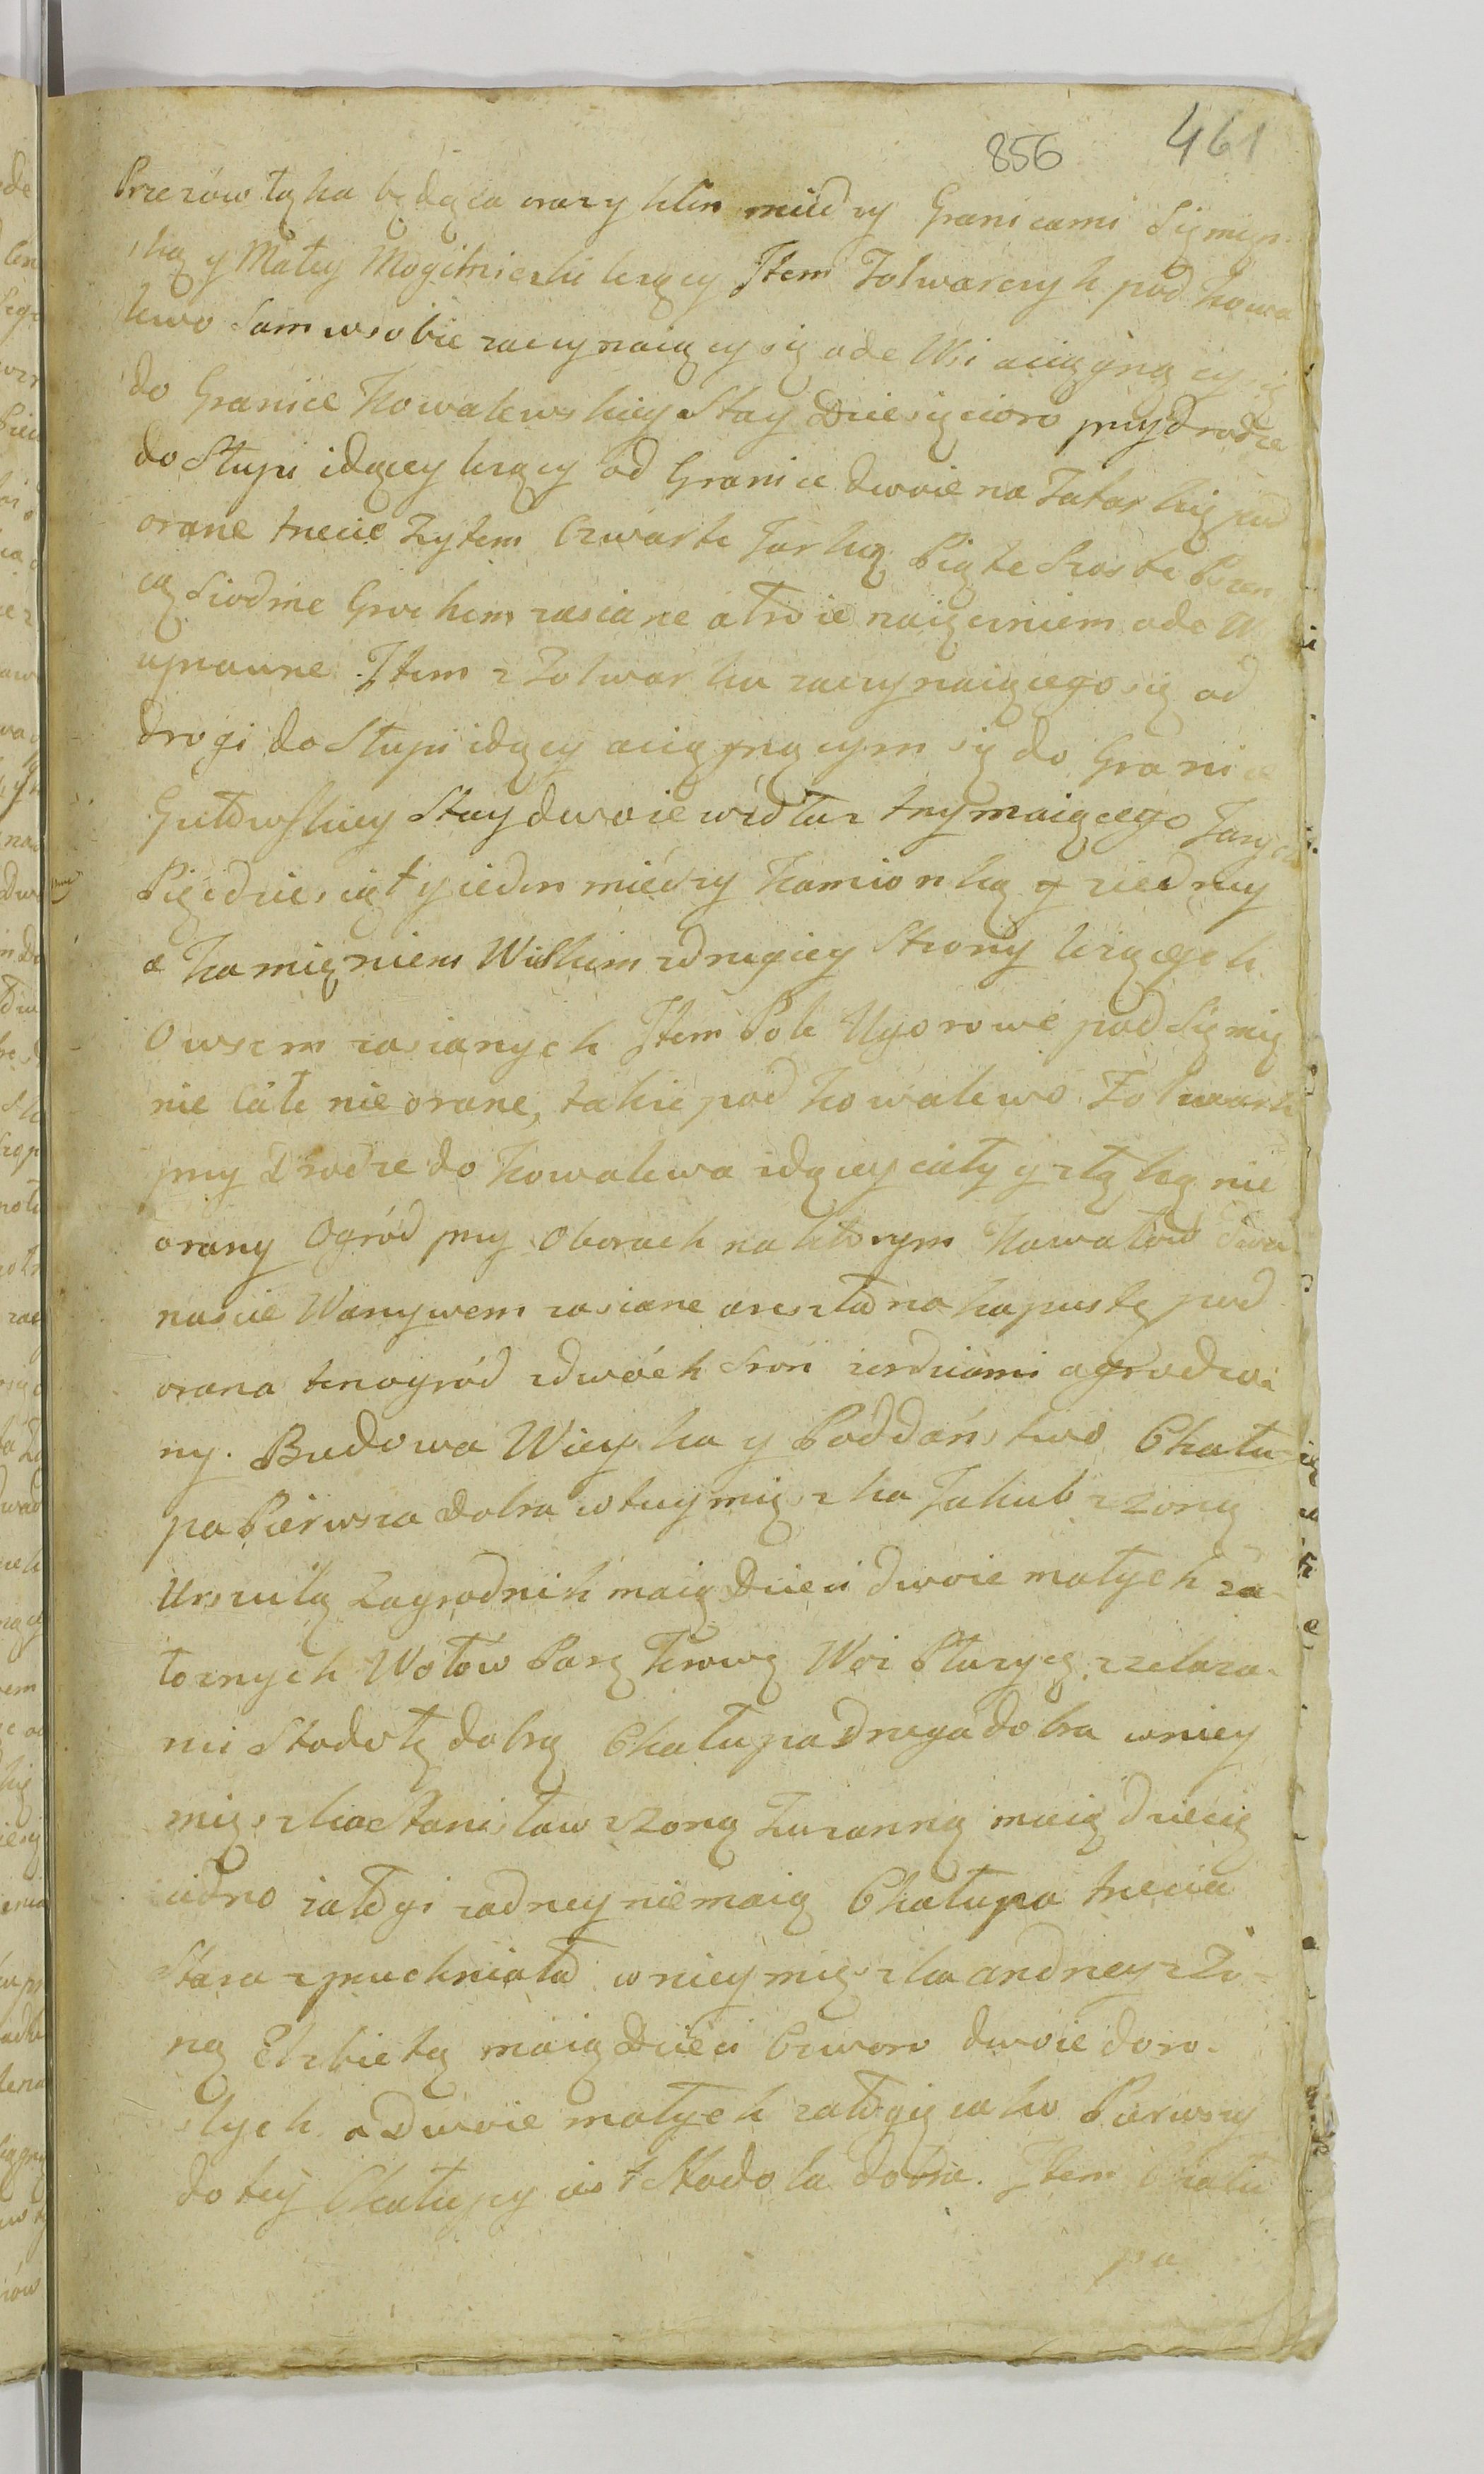 856 461
Przezów łąka będąca orazy klin miedzy Granicami Sięmięn
ską y Małey Mogilnieckı lezący Item Folwarczyk pod Kowa
lewo Sam w sobie zaczynaiący się ode Wsi aciągnący się
do Granice Kowalewskiey Stay Dziesięcioro przy drodze
do Słupi idącey lezący od Granice dwoie na Tatarkię pod
orane trzecie Zytem Czwarte Jarką Piąte Szoste Pszen
cą Siodme Grochem zasiane a troie naięczmień ode W
uprawne. Item z Folwarku zaczynaiącego się od
drogi do Słupi idący aciągnącym się do Granice
Gutowskiey Stay dwoie wzdłuz trzymaiącego
Pięcdziesiąt y ieden miedzy Kamionką z iedney
a Kamięniem Wielkim zdrugiey Strony lezących
Owsem zasianych Item Pole Ugorowe pod Sięmię
nie Całe nie orane, takie pod Kowalewo Folwark
przy Drodze do Kowalewa idącey cały y złąką nie
orany Ogród przy Oborach na ktorym Kawałow dwa
nascie Warzywem zasiane areszta na kapustę pod
orana tenogród zdwóch Stron zerdziami ogrodzo
ny. Budowa Wieyska y Poddaństwo Chału-
pa Pierwsza Dobra wtey mięszka Jakub z Zoną
Urszulą Zagrodnik maią Dzieci dwoie małych za-
łoznych Wołow Parę Krowę Woz Płuzycę zzelaza-
mi Stodołę dobrą Chałupa Druga dobra wniey
mięszka Stanisław z Zoną Zuzanną maią dziecię
iedno załogi zadney niemaią Chałupa trzecia
Stara zpruchniała wniey mięszka andrzey z Zo-
ną Elzbietą maią Dzieci Czworo dwoie doro-
słych a Dwoie małych załogę iako Pierwszy
do tey Chałupy iest Stodoła dobra. Item Chału
pa